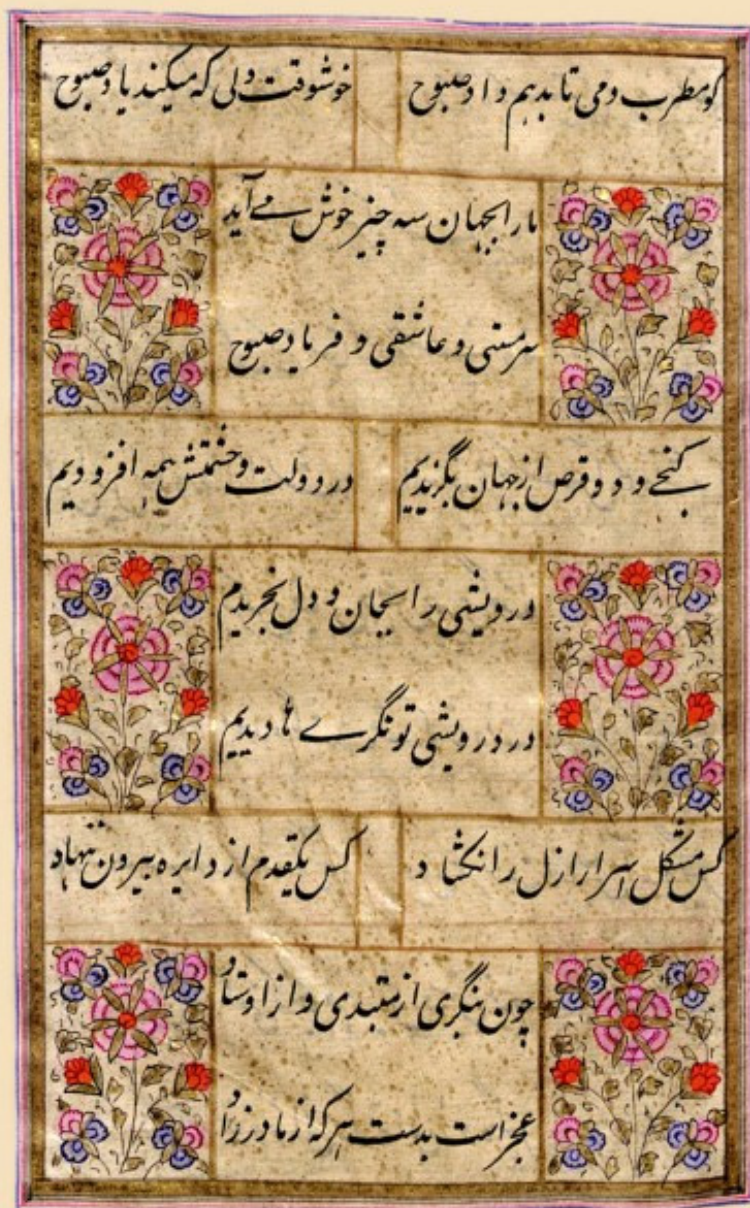 کو مطرب و می تا بدهم داد صبوح
خوشوقت دلی که میکند یاد صبوح
ما را بجهان سه چیز خوش می آید
سرمستی و عاشقی و فریاد صبوح
کنجی و دو قرص از جهان بگزیدیم
در دولت و حشمتش همه افزودیم
درویشی را بجان و دل بخریدم
در درویشی توانگری ها دیدیم
کس مشکل اسرار ازل را نکشاد
کس یکقدم از دایره بیرون ننهاد
چون بنگری از مبتدی و از اوستاد
عجز است بدست هر که از مادر زاد